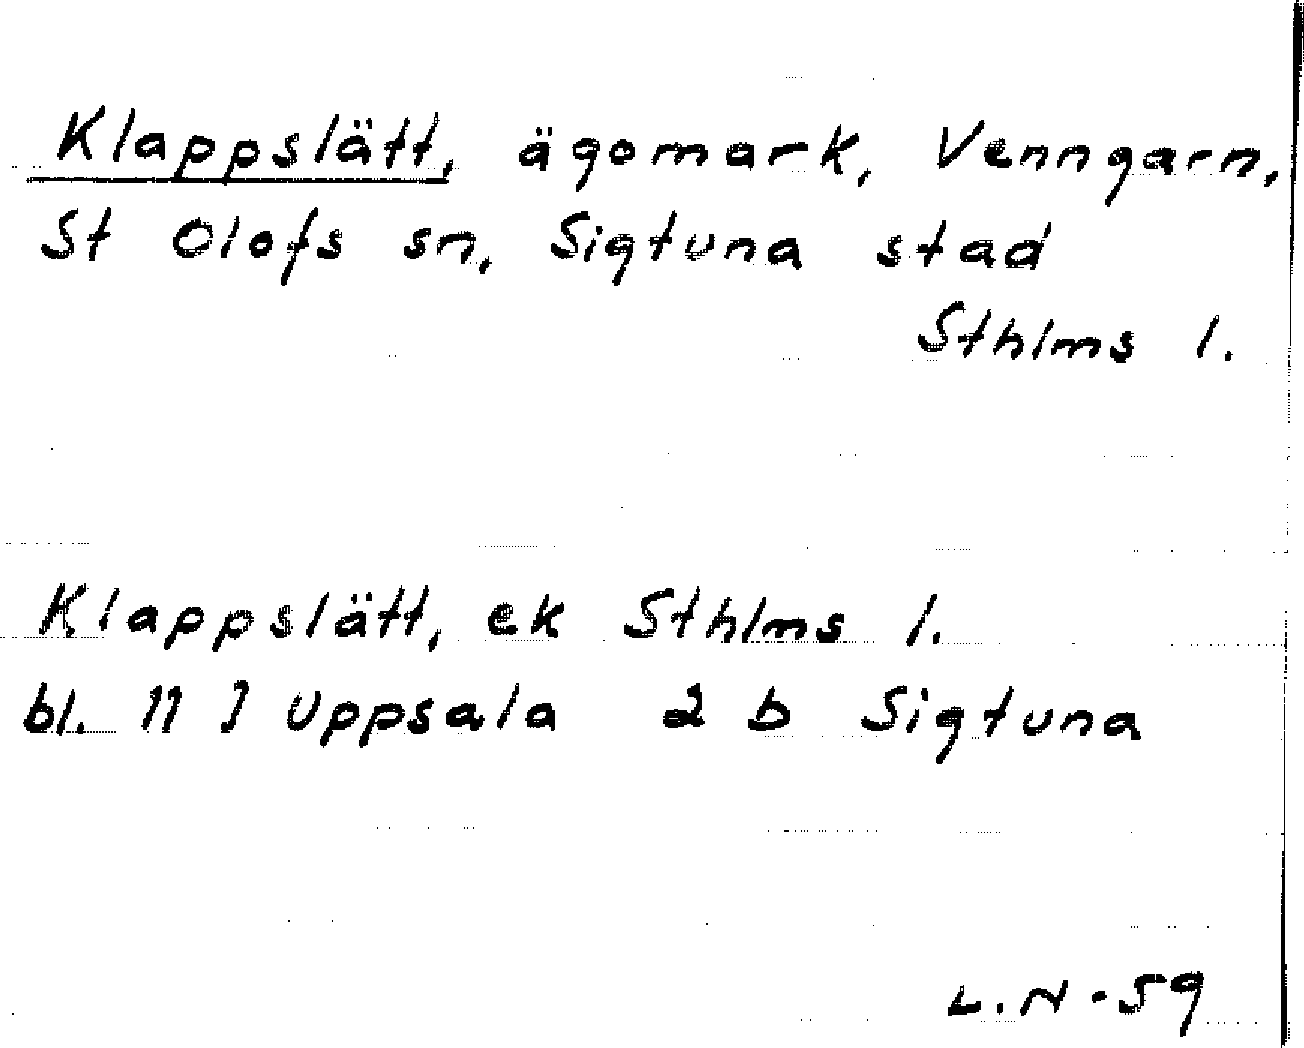 Klappslätt, ägomark, Venngarn,
St Olofs sn, Sigtuna stad
Sthlms l.
Klappslätt, ek Sthlms l.
bl. 11 I Uppsala 2 b Sigtuna
L.N - 59